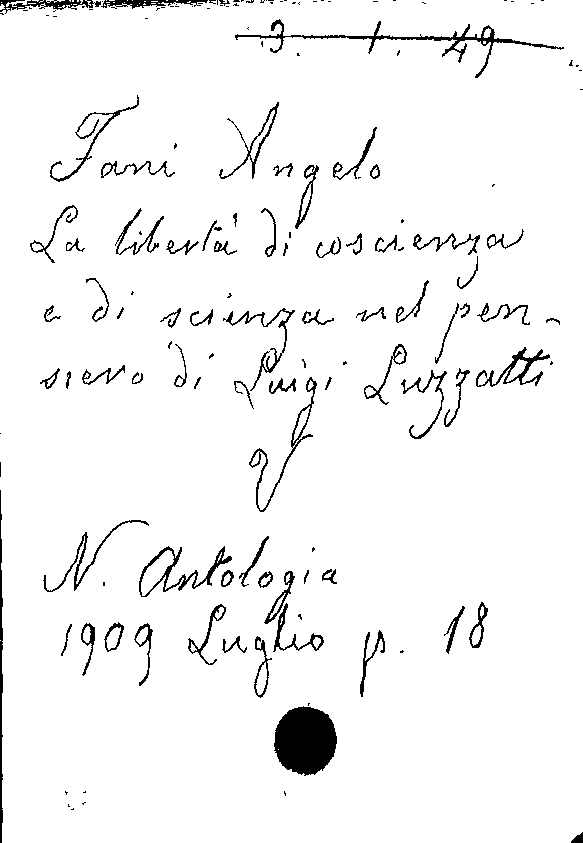 3. 1. 49
Fani Angelo
La libertà di coscienza
e di scienza nel pen-
siero di Luigi Luzzatti
V
N. Antologia
1909 Luglio p. 18